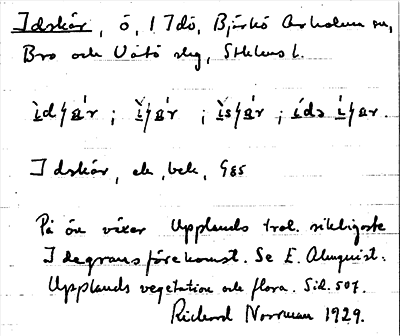 Idskär, ö, l Idö, Björkö Arholma sn,
Bro och Vätö slg, Sthlms l.
Idskär, ek, bek, G85
På ön växer Upplands trol. rikligaste
Idegransförekomst. Se E. Almquist.
Upplands vegetation och flora. Sid. 507.
Richard Norrman 1929.